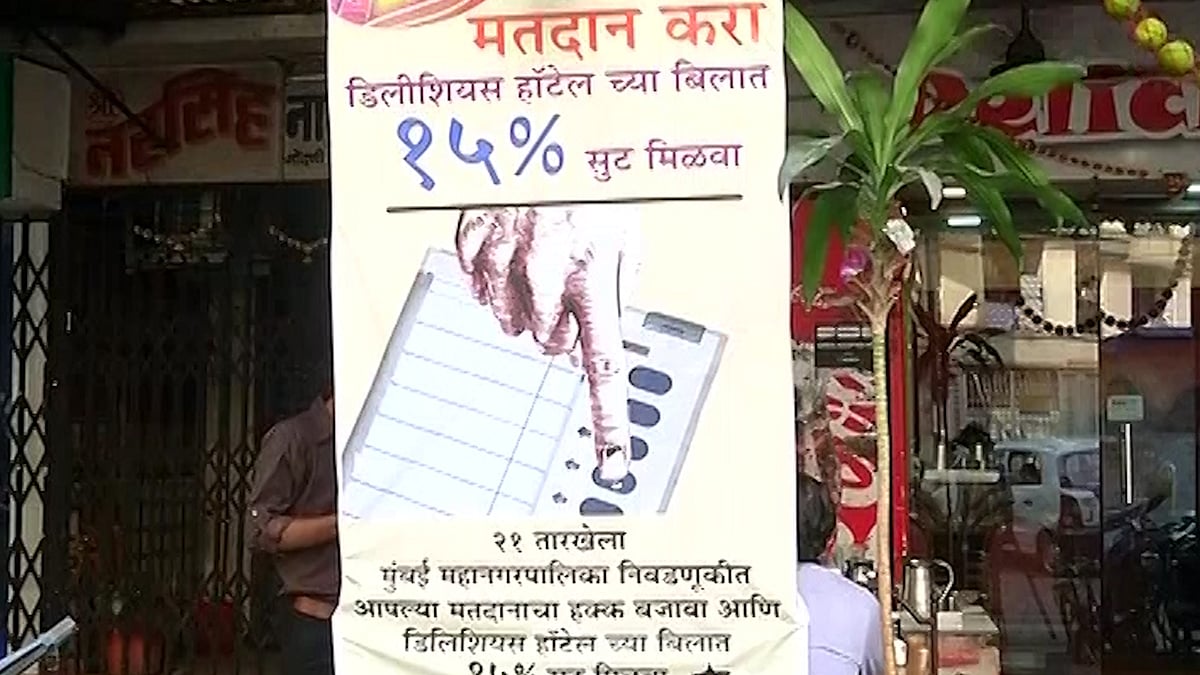 मतदान करा
डिलीशियस हॉटेल च्या बिलात
१५% सुट मिळवा
२१ तारखेला
मुंबई महानगरपालिका निवडणूकीत
आपल्या मतदानाचा हक्क बजावा आणि
डिलिशियस हॉटेल च्या बिलात
१५% सुट मिळवा
श्री
नरसिंह